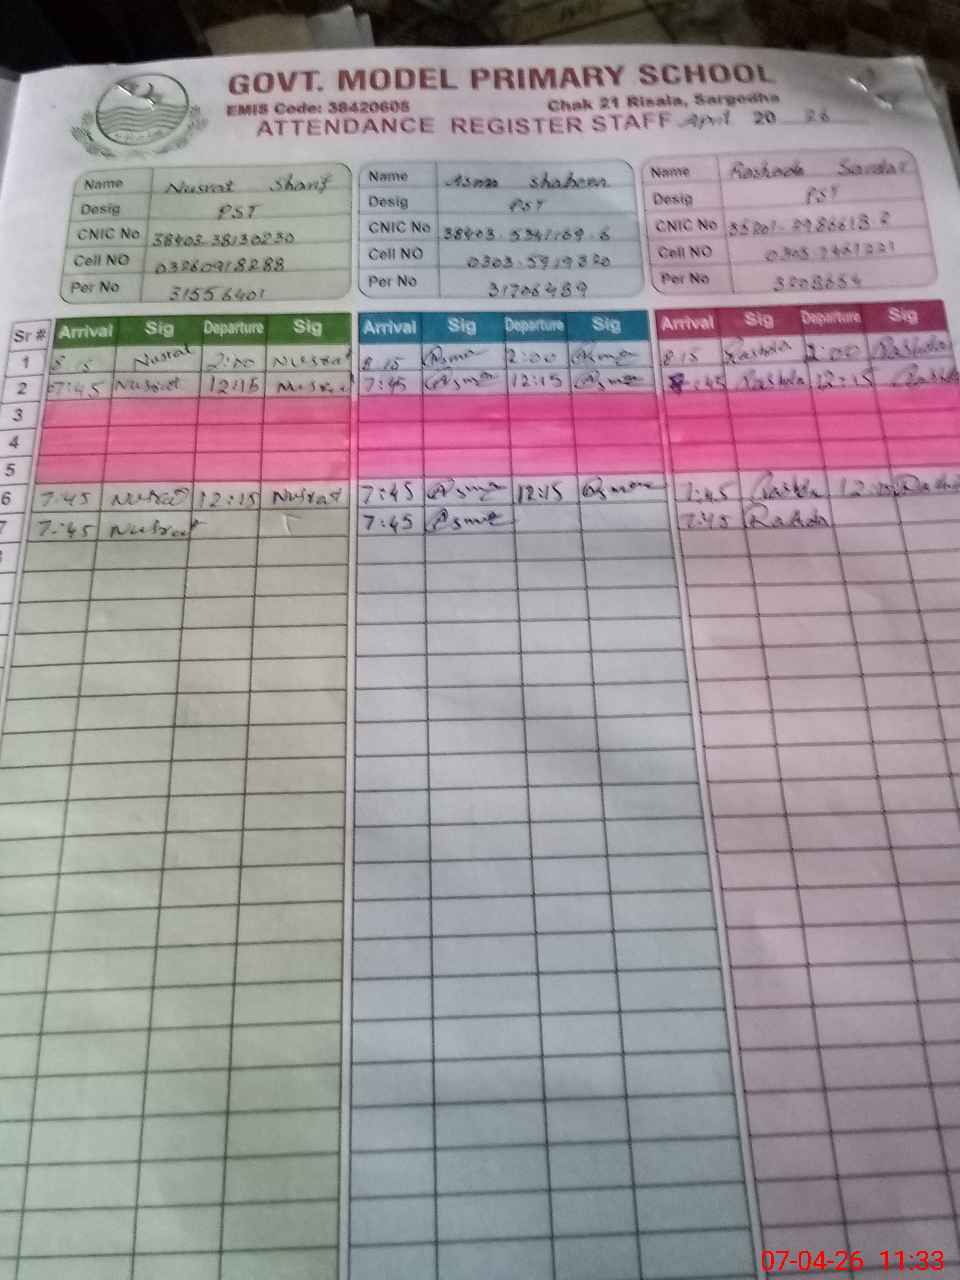 GOVT. MODEL PRIMARY SCHOOL
EMIS Code: 38420608 Chak 21 Risala, Sargodha
ATTENDANCE REGISTER STAFF April 20 26
Name Nusrat Sharif Name Asma Shaheen Name Sardar
Desig PST Desig PST Desig PST
CNIC No CNIC No CNIC No
Cell NO 03260918288 Cell NO Cell NO
Per No 31556401 Per No 31706489 Per No
Sr # Arrival Sig Departure Sig Arrival Sig Departure Sig Arrival Sig Departure Sig
1 8 15 Nusrat 2:00 Nusrat 8 15 Asma 2:00 Asma 8 15 Rashda 2:00 Rashda
2 7:45 Nusrat 12:15 Nusrat 7:45 Asma 12:15 Asma 7:45 Rashda 12:15 Rashda
3
4
5
6 7:45 Nusrat 12:15 Nusrat 7:45 Asma 12:15 Asma 7:45 Rashda 12:15
7 7:45 Nusrat 7:45 Asma 7:45
07-04-26 11:33